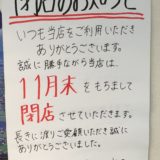 閉店のお知らせ
いつも当店をご利用いただき
ありがとうございます。
誠に勝手ながら当店は、
11月末をもちまして
閉店させていただきます。
長きに渡りご愛顧いただき誠に
ありがとうございました。